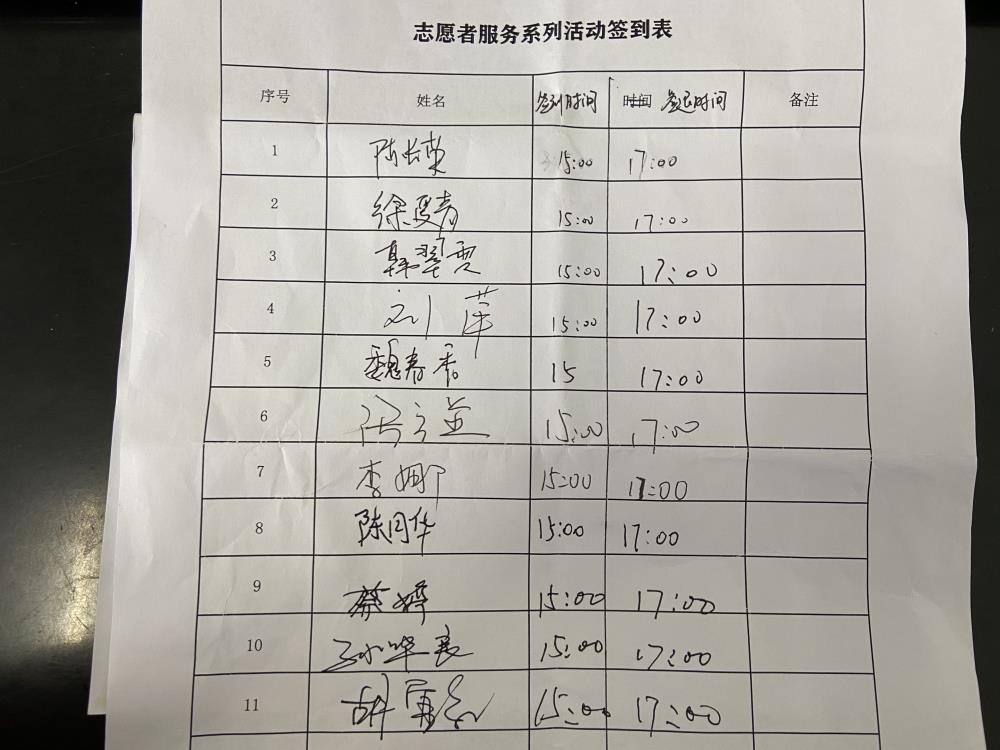 志愿者服务系列活动签到表
序号 姓名 签到时间 时间 签退时间 备注
1 陈长荣 15:00 17:00
2 徐夏青 15:00 17:00
3 韩翠霞 15:00 17:00
4 刘萍 15:00 17:00
5 魏春香 15 17:00
6 15:00 17:00
7 李娜 15:00 17:00
8 陈月华 15:00 17:00
9 蔡婷 15:00 17:00
10 15:00 17:00
11 胡 15:00 17:00